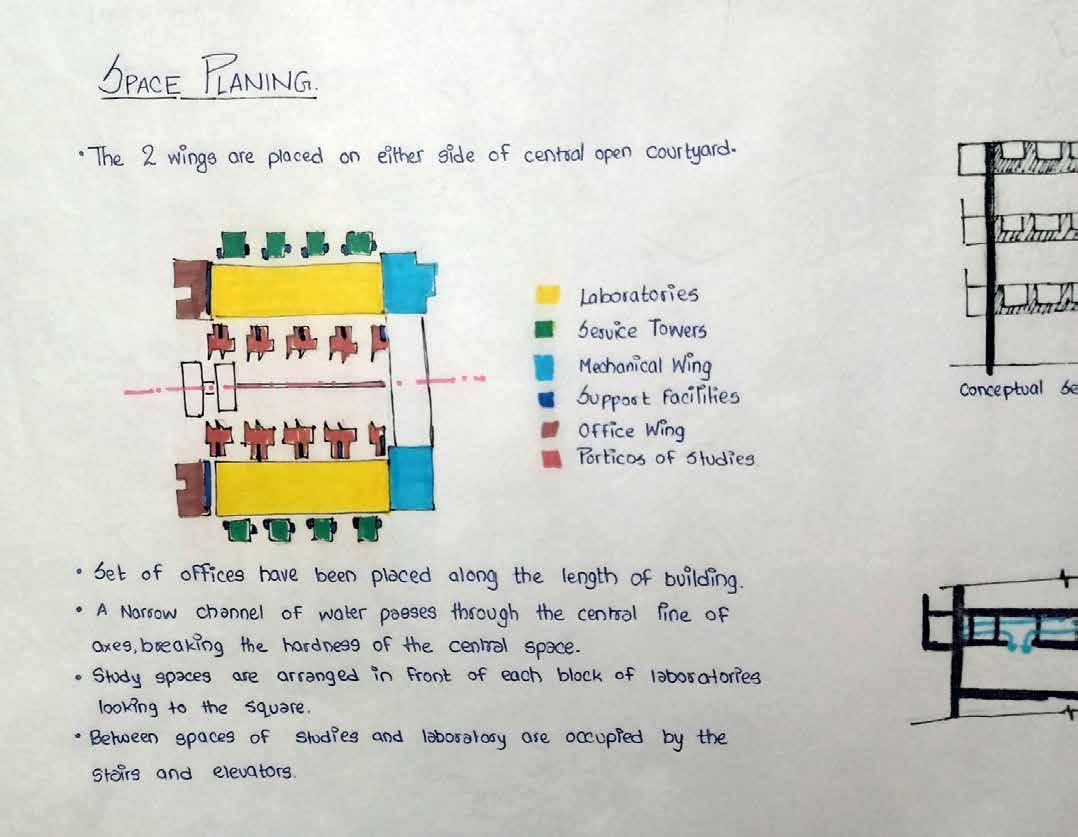 SPACE PLANING.
• The 2 wings are placed on either side of central open courtyard.
Laboratories
Service Towers
Mechanical Wing
Support Facilities
Office Wing
Porticos of Studies
Conceptual Se
• Set of offices have been placed along the length of building.
• A Narrow channel of water passes through the central line of
axes, breaking the hardness of the central space.
• Study spaces are arranged in front of each block of laboratories
looking to the square.
• Between spaces of studies and laboratory are occupied by the
stairs and elevators.